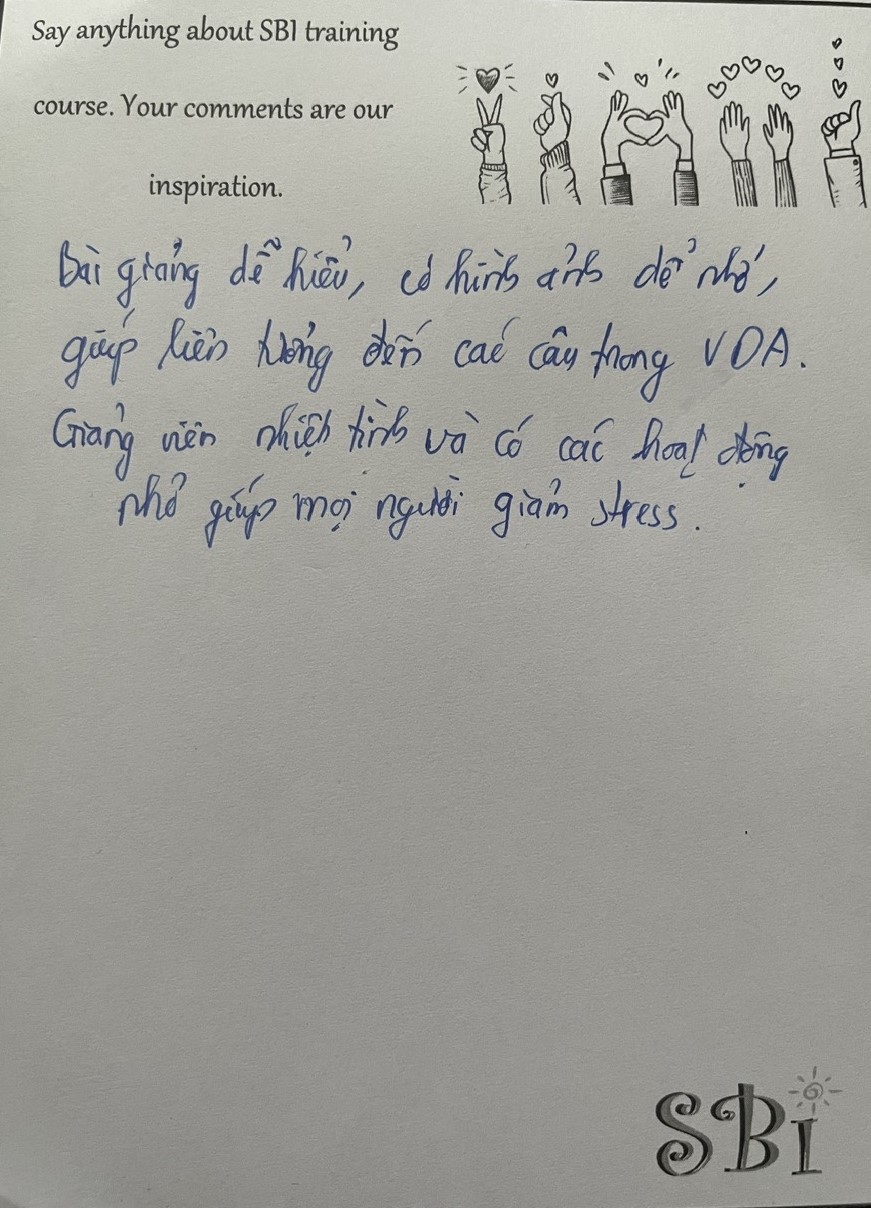 Say anything about SBI training
course. Your comments are our
inspiration.
Bài giảng dễ hiểu, có hình ảnh để nhớ,
giúp liên tưởng đến các câu trong VDA.
Giảng viên nhiệt tình và có các hoạt động
nhỏ giúp mọi người giảm stress.
SBI